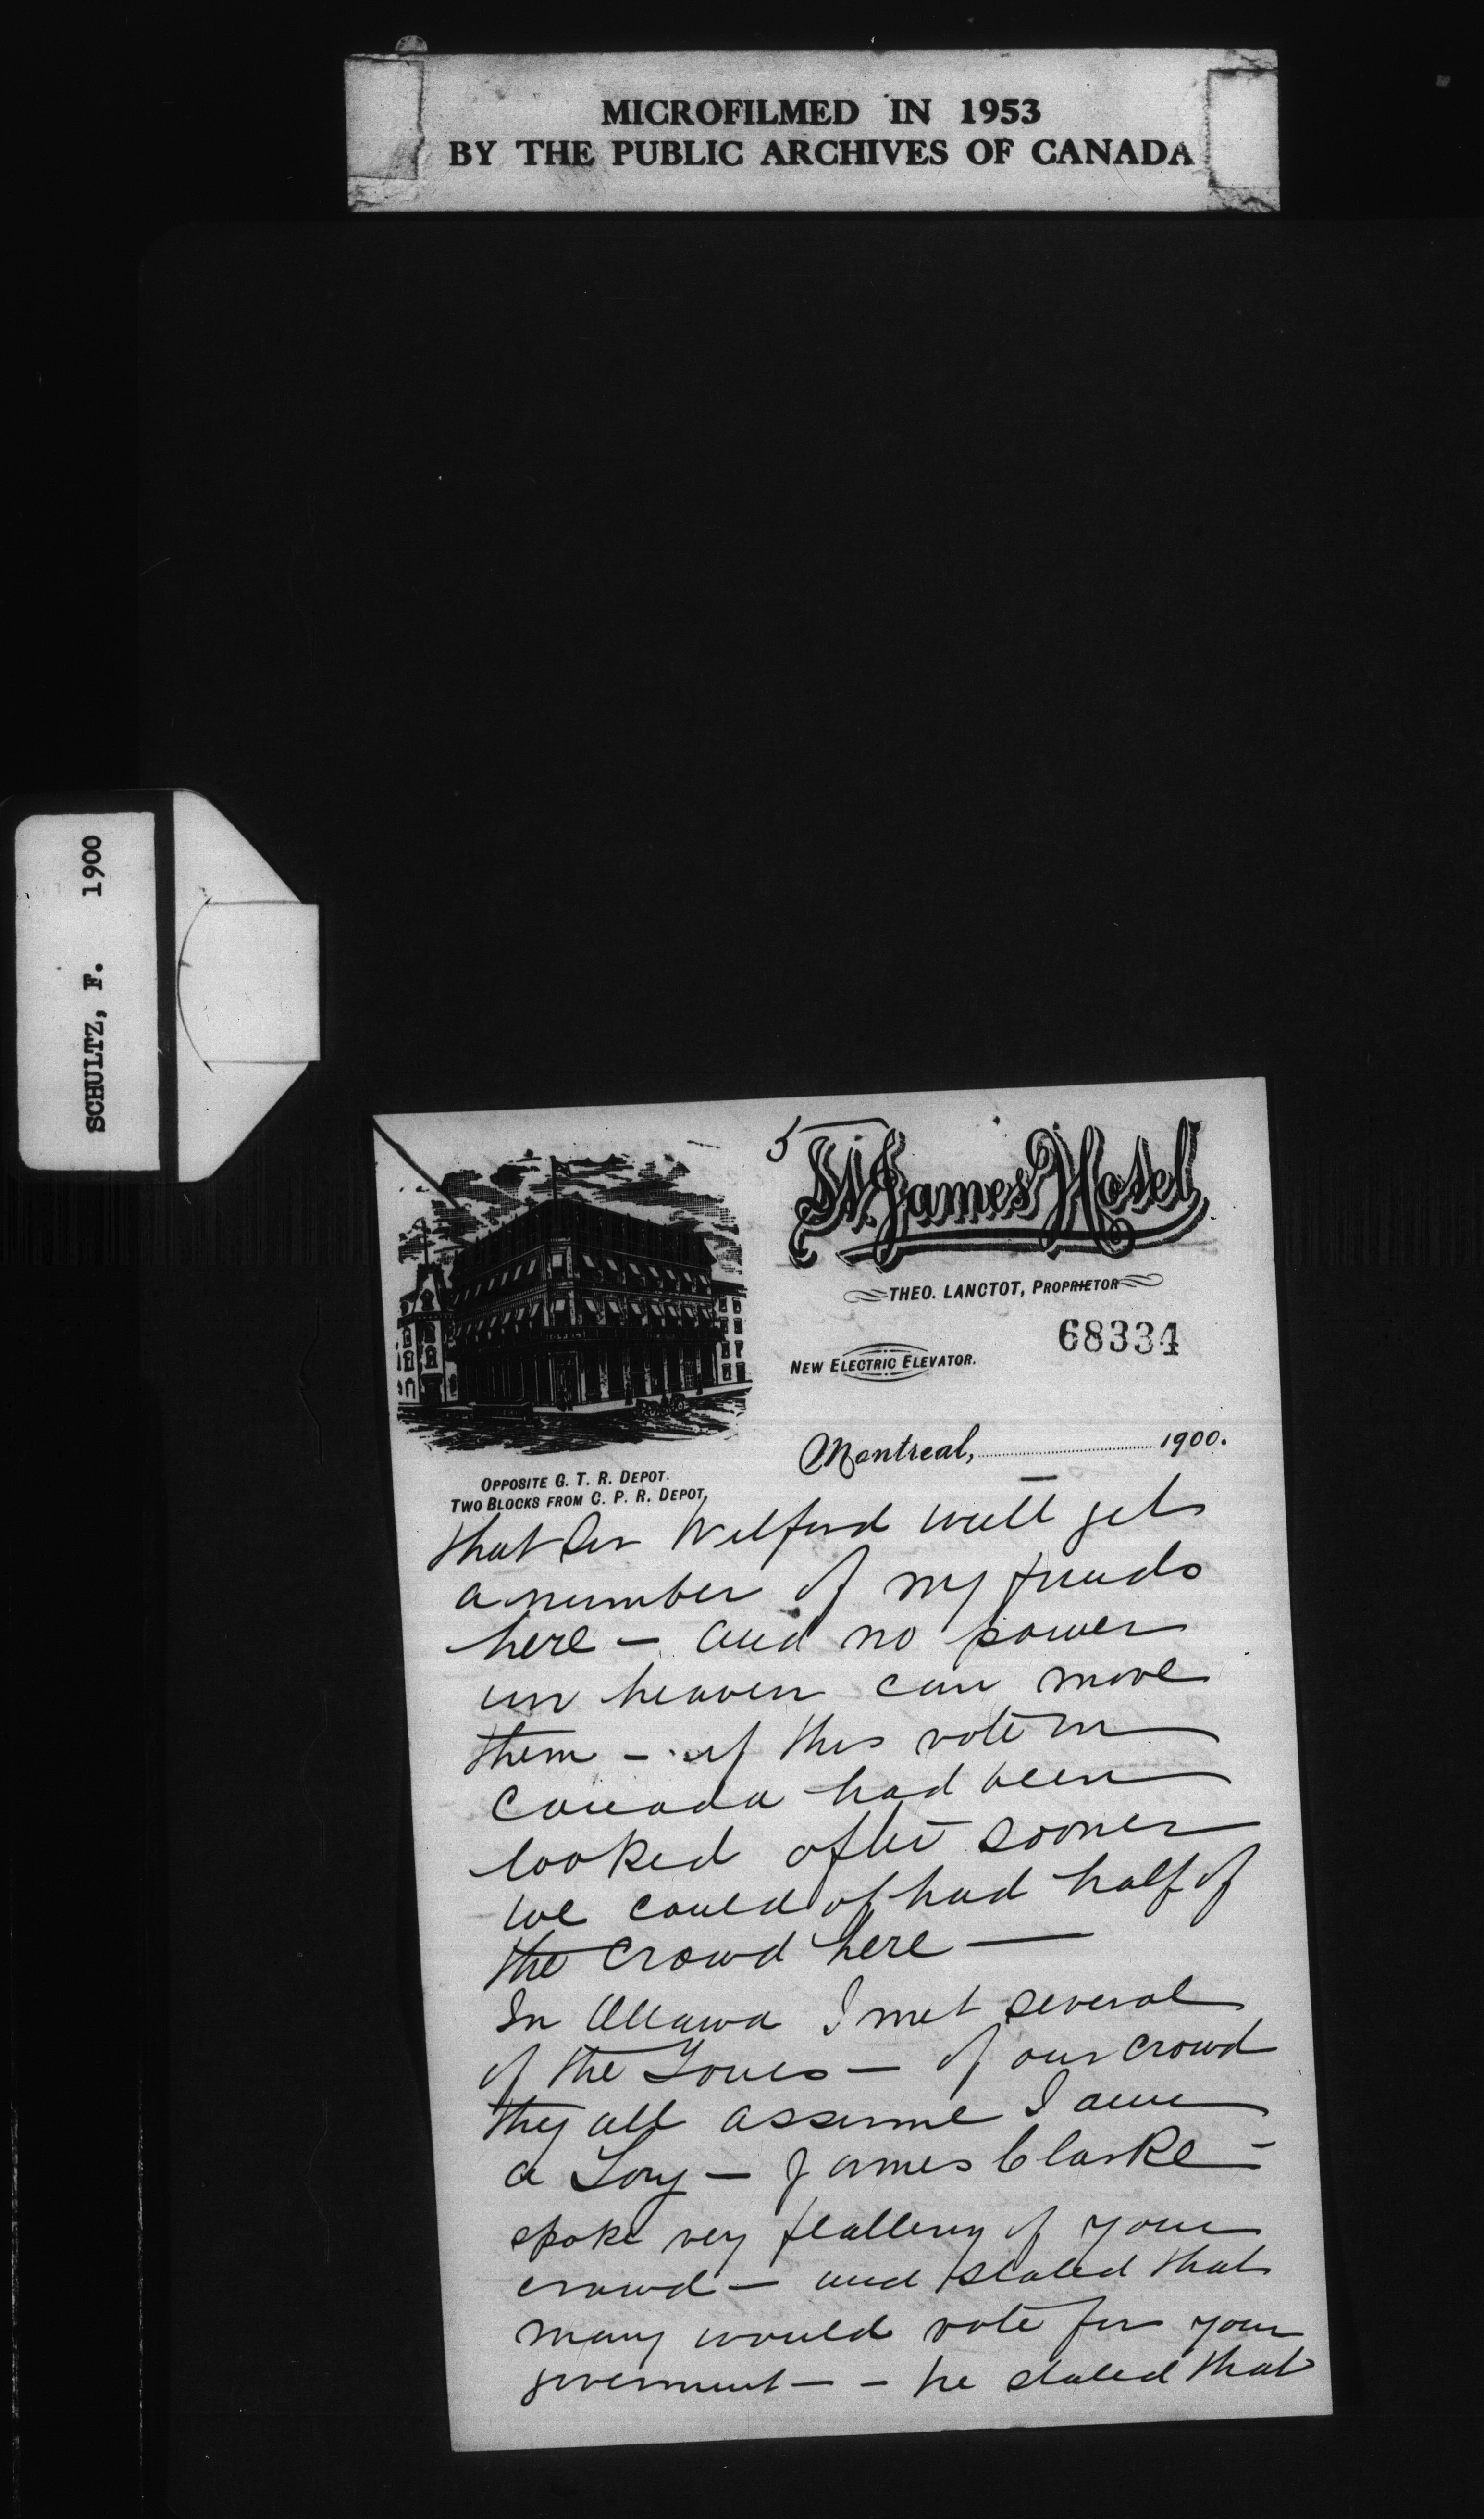 MICROFILMED IN 1953
BY THE PUBLIC ARCHIVES OF CANADA
SCHULTZ, F. 1900
5
St. James Hotel
THEO. LANCTOT, PROPRIETOR
68334
NEW ELECTRIC ELEVATOR.
Montreal, 1900.
OPPOSITE G. T. R. DEPOT.
TWO BLOCKS FROM C. P. R. DEPOT,
that Sir Wilford will get
a number of my friends
here — and no power
in heaven can move
them — if this vote in
Canada had been
looked after sooner
we could of had half of
the crowd here —
In Ottawa I met several
of the Tories — of our crowd
they all assume I am
a Tory — James Clarke —
spoke very flattery of your
crowd — and stated that
many would vote for your
goverment — - he stated that